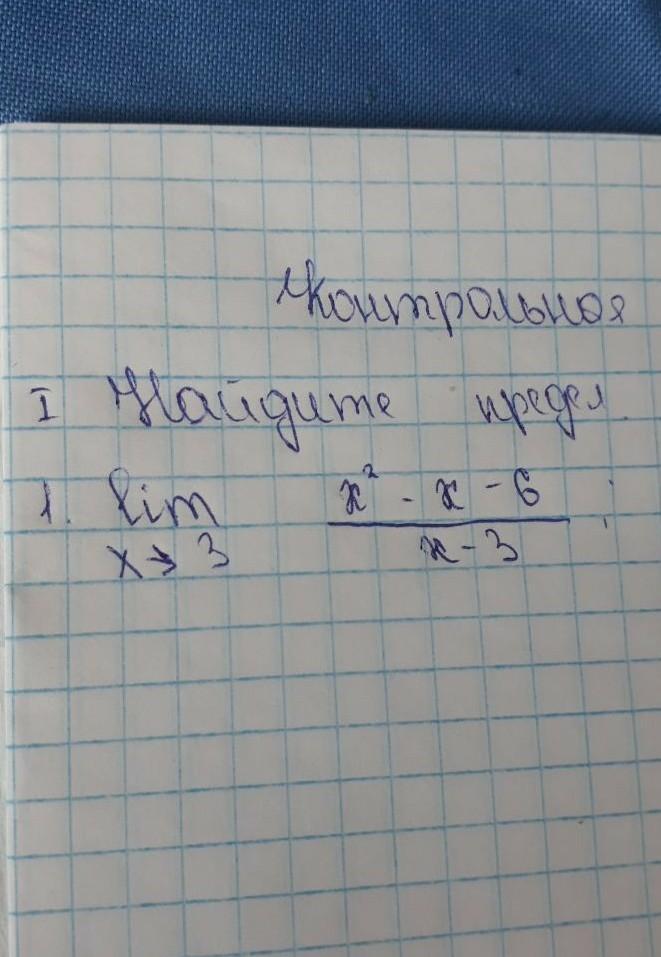 Контрольная
I Найдите предел
1. lim x² - x - 6 ;
x→3 x-3